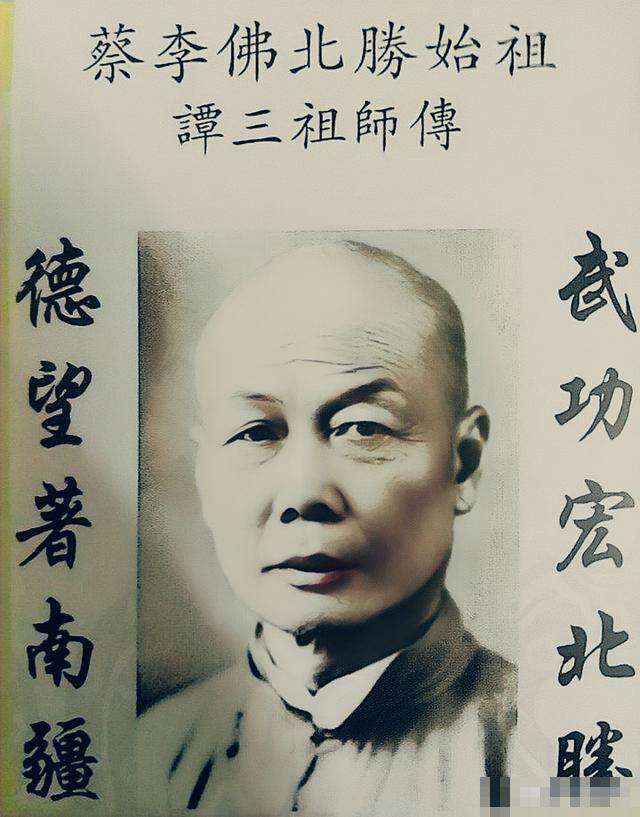 蔡李佛北勝始祖
譚三祖師傳
武功宏北勝
德望著南疆